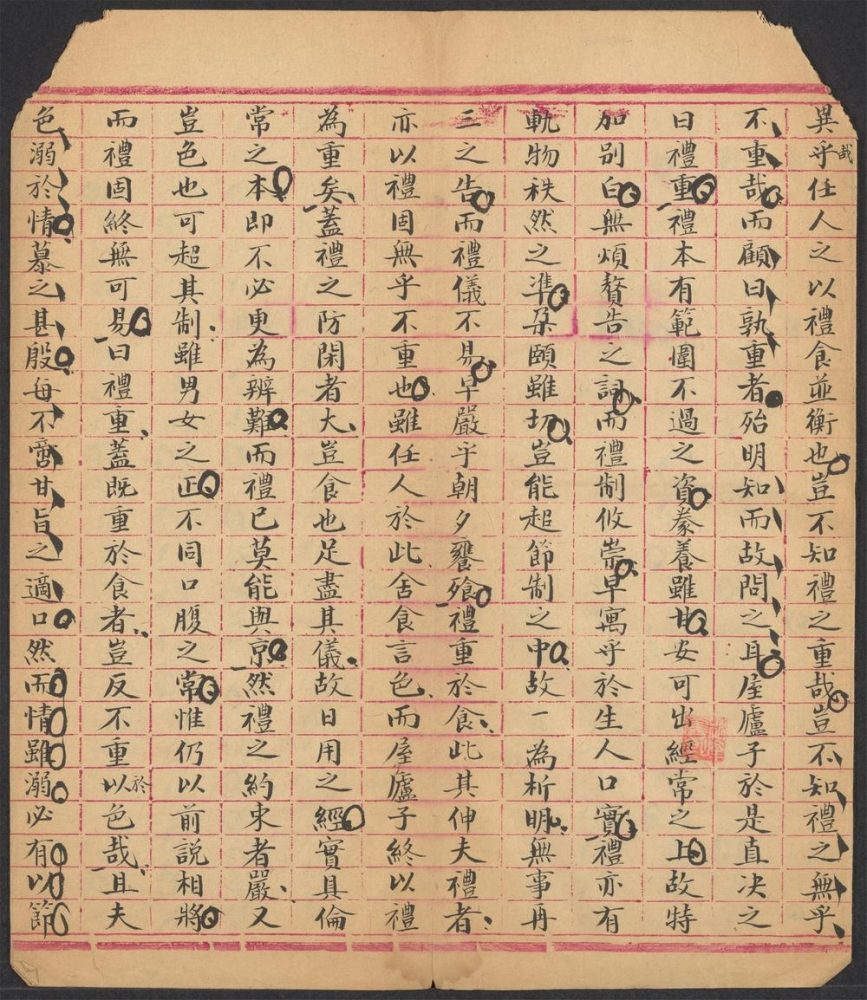 異乎哉任人之以禮食並衡也豈不知禮之重哉豈不知禮之無乎
不重哉而顧曰孰重者殆明知而故問之耳屋廬子於是直決之
曰禮重禮本有範圍不過之資豢養雖甘安可出經常之上故特
加別白無煩贅告之詞而禮制攸崇早寓乎於生人口實禮亦有
軌物秩然之準朶頤雖切豈能超節制之中故一為析明無事再
三之告而禮儀不易早嚴乎朝夕饔飱禮重於食此其伸夫禮者
亦以禮固無乎不重也雖任人於此舍食言色而屋廬子終以禮
為重矣蓋禮之防閑者大豈食也足盡其儀故日用之經實具倫
常之本即不必更為辨難而禮已莫能與京然禮之約束者嚴又
豈色也可超其制雖男女之正不同口腹之常惟仍以前說相將
而禮固終無可易曰禮重蓋既重於食者豈反不重以於色哉且夫
色溺於情慕之甚殷每不啻甘旨之適口然而情雖溺必有以節